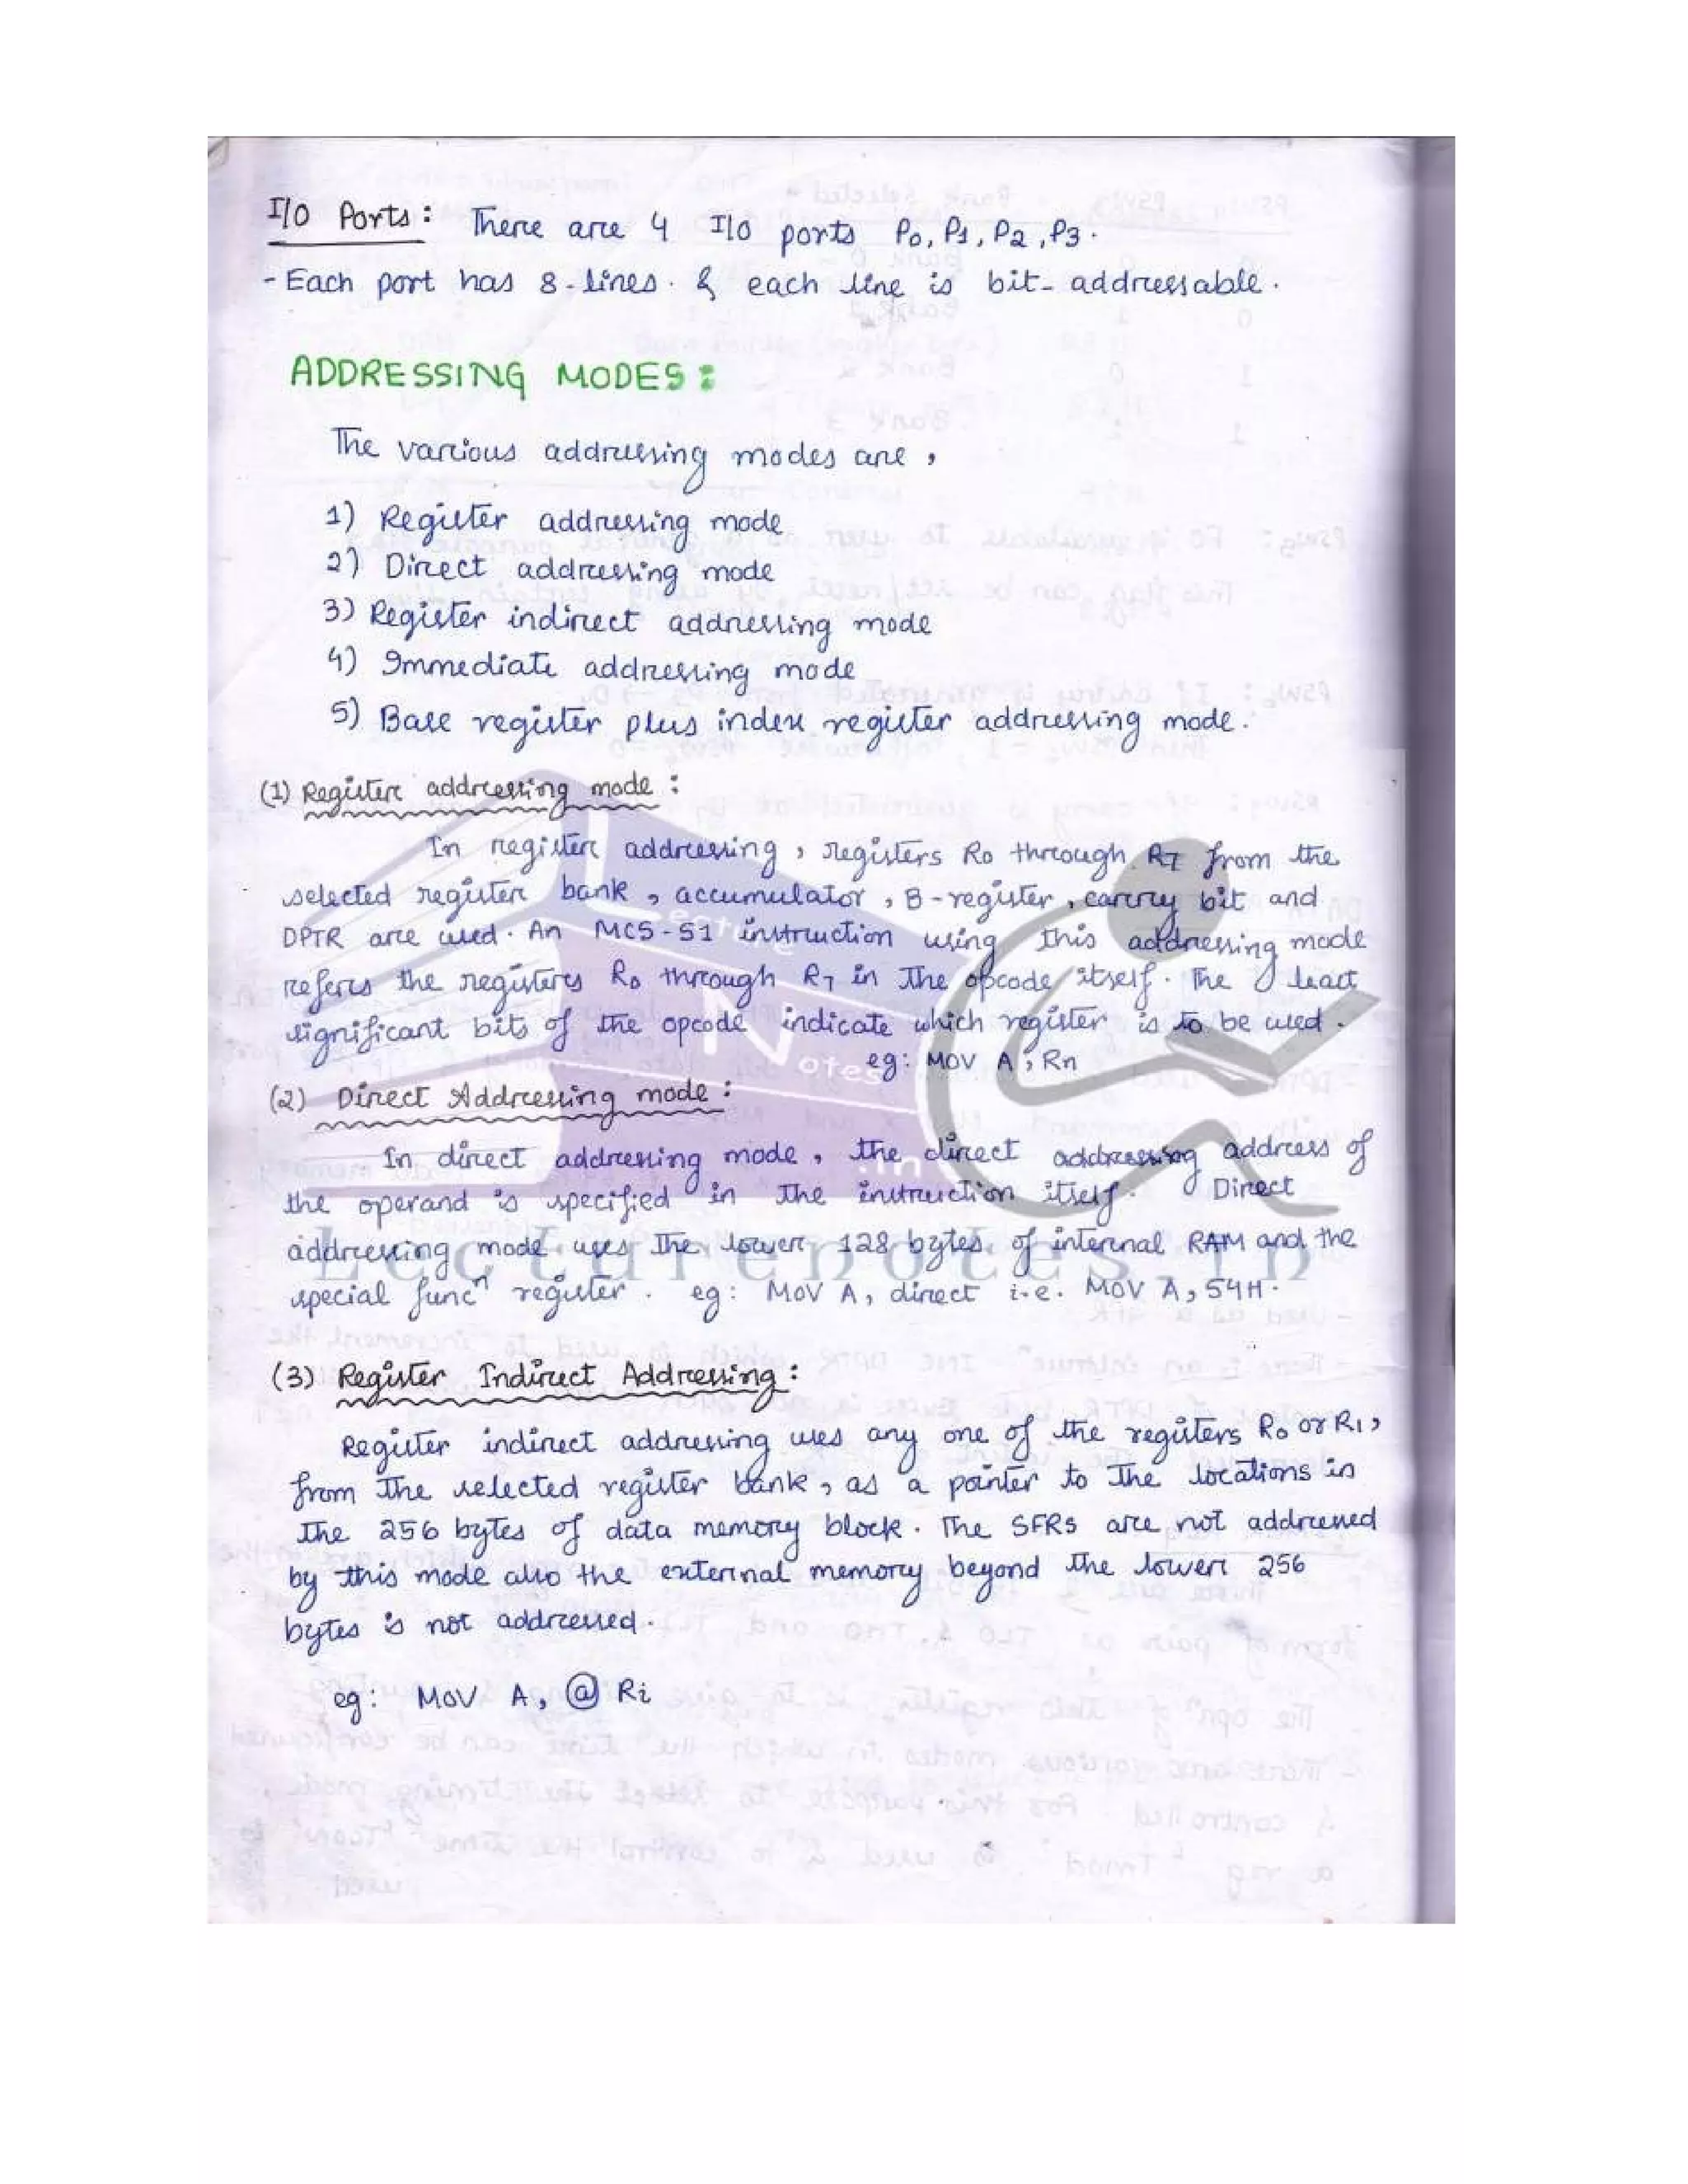 I/O Ports : There are 4 I/O ports P0, P1, P2, P3.
- Each port has 8-lines. & each line is bit-addressable.
ADDRESSING MODES :
The various addressing modes are,
1) Register addressing mode
2) Direct addressing mode
3) Register indirect addressing mode
4) Immediate addressing mode
5) Base register plus index register addressing mode.
(1) Register addressing mode :
In register addressing, registers R0 through R7 from the
selected register bank, accumulator, B-register, carry bit and
DPTR are used. An MCS-51 instruction using this addressing mode
refers the registers R0 through R7 in the opcode itself. The least
significant bits of the opcode indicate which register is to be used.
eg: MOV A, Rn
(2) Direct Addressing mode :
In direct addressing mode, the direct addressing address of
the operand is specified in the instruction itself. Direct
addressing mode uses the lower 128 bytes of internal RAM and the
special funcⁿ register. eg: MOV A, direct i.e. MOV A, 54H.
(3) Register Indirect Addressing :
Register indirect addressing uses any one of the registers R0 or R1,
from the selected register bank, as a pointer to the locations in
the 256 bytes of data memory block. The SFRs are not addressed
by this mode also the external memory beyond the lower 256
bytes is not addressed.
eg: MOV A, @ Ri
Lecture
Notes
.in
Lecturenotes.in